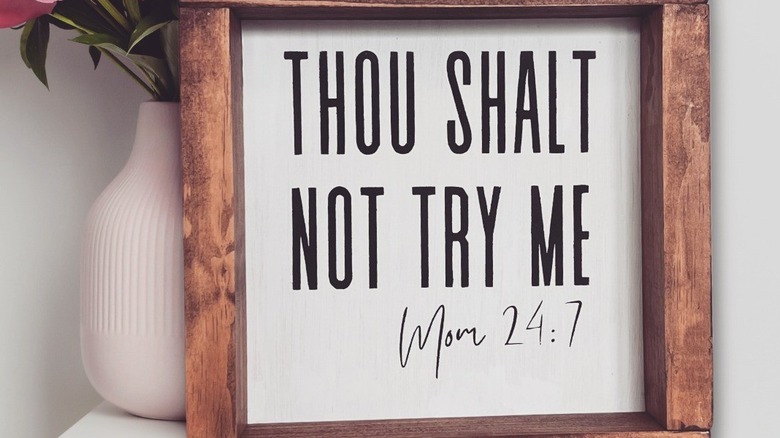 THOU SHALT
NOT TRY ME
Mom 24:7